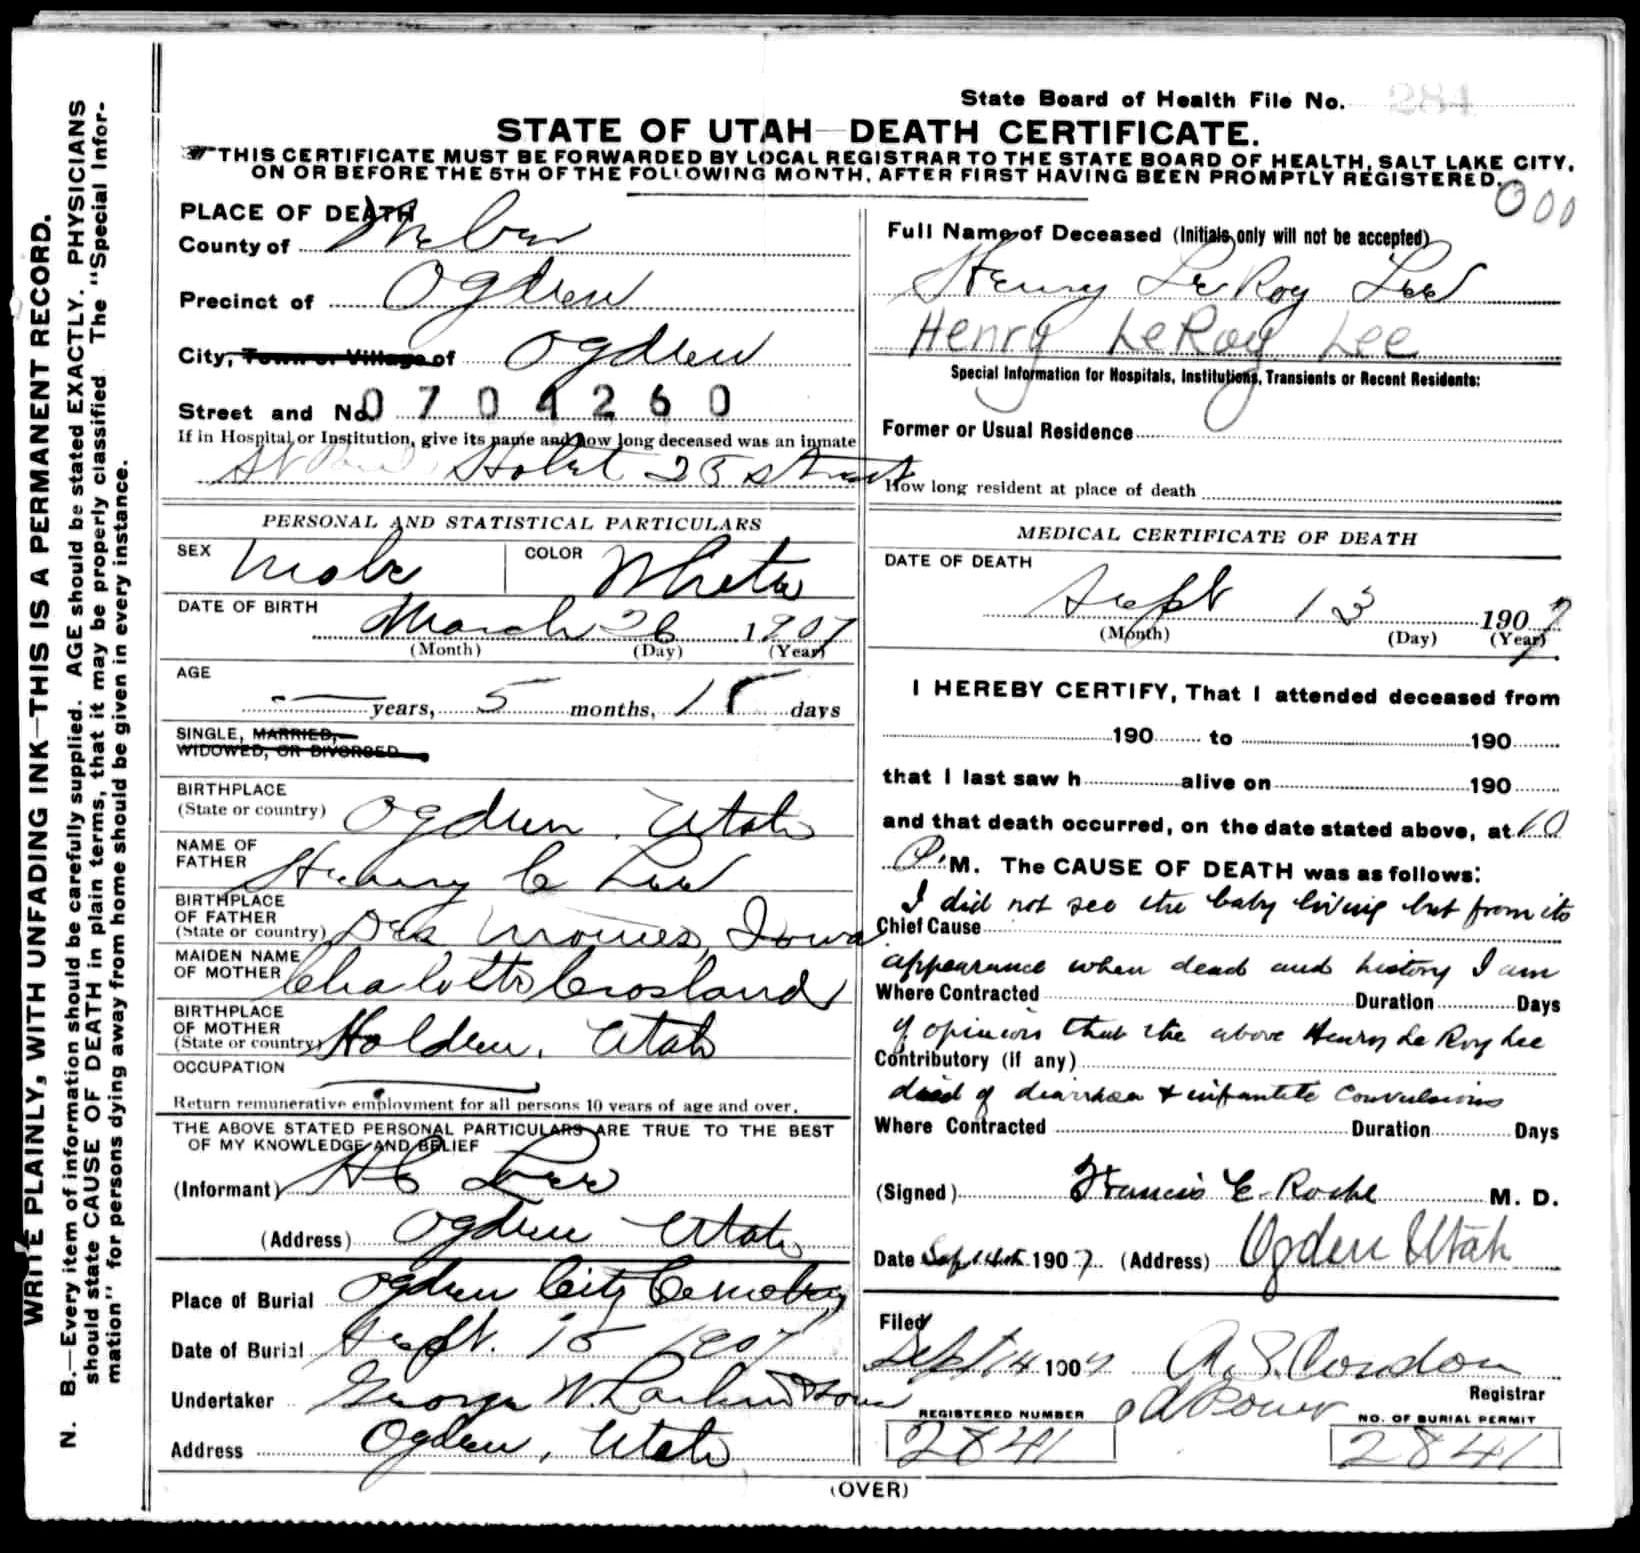 State Board of Health File No. 284
STATE OF UTAH—DEATH CERTIFICATE.
THIS CERTIFICATE MUST BE FORWARDED BY LOCAL REGISTRAR TO THE STATE BOARD OF HEALTH, SALT LAKE CITY,
ON OR BEFORE THE 5TH OF THE FOLLOWING MONTH, AFTER FIRST HAVING BEEN PROMPTLY REGISTERED.
000
WRITE PLAINLY, WITH UNFADING INK—THIS IS A PERMANENT RECORD.
N. B.—Every item of information should be carefully supplied. AGE should be stated EXACTLY. PHYSICIANS
should state CAUSE OF DEATH in plain terms, that it may be properly classified. The "Special Infor-
mation" for persons dying away from home should be given in every instance.
PLACE OF DEATH
County of Weber
Precinct of Ogden
City, Town or Village of Ogden
Street and No. 0704260
If in Hospital or Institution, give its name and how long deceased was an inmate
Hotel 25 Street
PERSONAL AND STATISTICAL PARTICULARS
SEX Male COLOR White
DATE OF BIRTH
March 26 1907
(Month) (Day) (Year)
AGE
— years, 5 months, days
SINGLE, MARRIED,
WIDOWED, OR DIVORCED
BIRTHPLACE
(State or country) Ogden, Utah
NAME OF
FATHER Henry C Lee
BIRTHPLACE
OF FATHER
(State or country) Des Moines, Iowa
MAIDEN NAME
OF MOTHER Charlotte Crosland
BIRTHPLACE
OF MOTHER
(State or country) Holden, Utah
OCCUPATION
Return remunerative employment for all persons 10 years of age and over.
THE ABOVE STATED PERSONAL PARTICULARS ARE TRUE TO THE BEST
OF MY KNOWLEDGE AND BELIEF
(Informant) H C Lee
(Address) Ogden Utah
Place of Burial Ogden City Cemetery
Date of Burial Sept. 15 1907
Undertaker George W. Larkin & Sons
Address Ogden, Utah
Full Name of Deceased (Initials only will not be accepted)
Henry LeRoy Lee
Henry LeRoy Lee
Special Information for Hospitals, Institutions, Transients or Recent Residents:
Former or Usual Residence
How long resident at place of death
MEDICAL CERTIFICATE OF DEATH
DATE OF DEATH
Sept 13 1907
(Month) (Day) (Year)
I HEREBY CERTIFY, That I attended deceased from
190 to 190
that I last saw h alive on 190
and that death occurred, on the date stated above, at 10
P. M. The CAUSE OF DEATH was as follows:
I did not see the baby living but from its
Chief Cause
appearance when dead and history I am
Where Contracted Duration Days
of opinion that the above Henry Le Roy Lee
Contributory (if any)
died of diarrhoea & infantile convulsions
Where Contracted Duration Days
(Signed) Francis E. Roche M. D.
Date Sept 14th 1907 (Address) Ogden Utah
Filed
Sept 14 1907 A. S. Condon
Registrar
REGISTERED NUMBER NO. OF BURIAL PERMIT
2841 2841
(OVER)